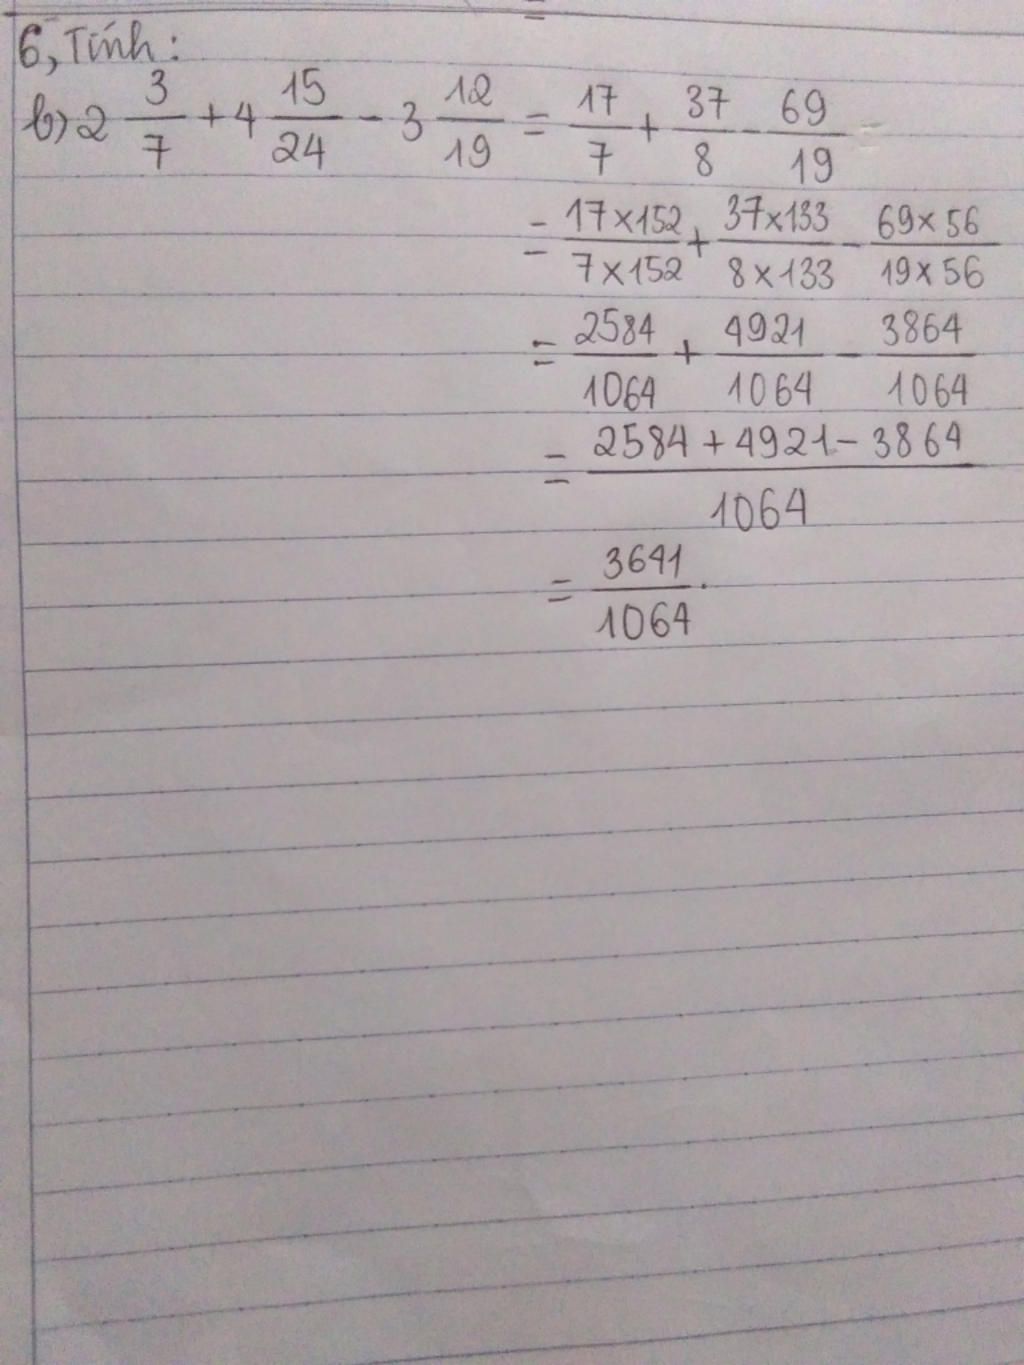 6, Tính:
b) 2 3/7 + 4 15/24 - 3 12/19 = 17/7 + 37/8 - 69/19 =
= 17×152/7×152 + 37×133/8×133 - 69×56/19×56
= 2584/1064 + 4921/1064 - 3864/1064
= 2584 + 4921 - 3864/1064
= 3641/1064.